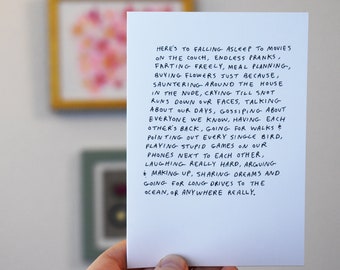 HERE'S TO FALLING ASLEEP TO MOVIES
ON THE COUCH, ENDLESS PRANKS,
FARTING FREELY, MEAL PLANNING,
BUYING FLOWERS JUST BECAUSE,
SAUNTERING AROUND THE HOUSE
IN THE NUDE, CRYING TILL SNOT
RUNS DOWN OUR FACES, TALKING
ABOUT OUR DAYS, GOSSIPING ABOUT
EVERYONE WE KNOW, HAVING EACH
OTHER'S BACK, GOING FOR WALKS &
POINTING OUT EVERY SINGLE BIRD,
PLAYING STUPID GAMES ON OUR
PHONES NEXT TO EACH OTHER,
LAUGHING REALLY HARD, ARGUING
& MAKING UP, SHARING DREAMS AND
GOING FOR LONG DRIVES TO THE
OCEAN, OR ANYWHERE REALLY.